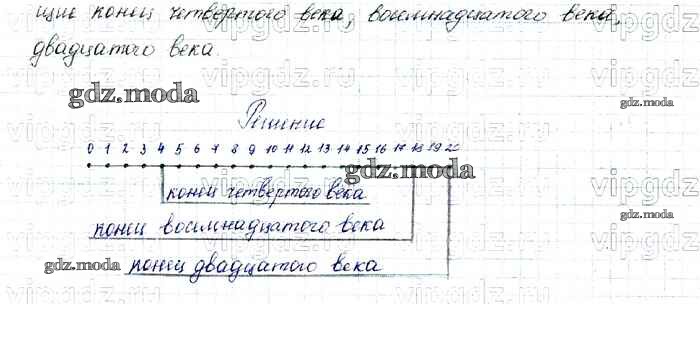 щие конец четвертого века, восемнадцатого века,
двадцатого века.
gdz.moda
Решение
0 1 2 3 4 5 6 7 8 9 10 11 12 13 14 15 16 17 18 19 20
gdz.moda
конец четвертого века
конец восемнадцатого века
gdz.moda
конец двадцатого века